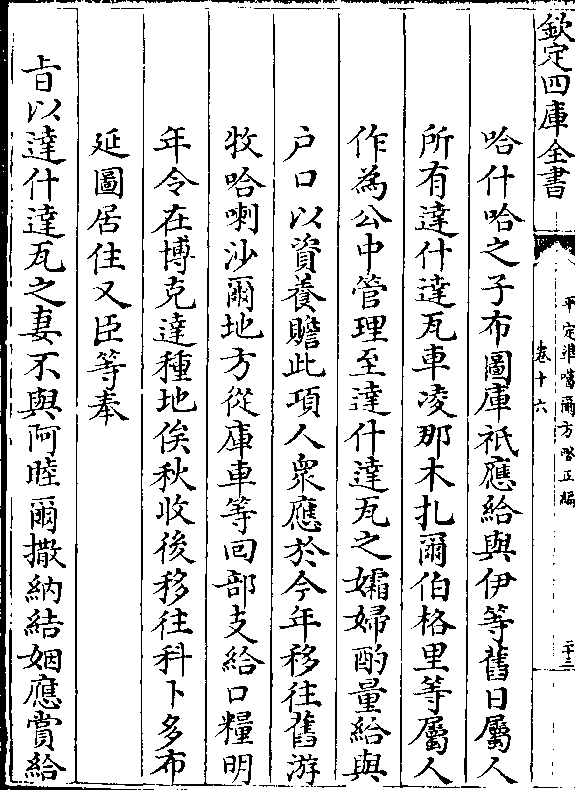 欽定四庫全書
平定準噶爾方略正編
卷十六
二十三
哈什哈之子布圖庫祇應給與伊等舊日屬人
所有達什達瓦車凌那木扎爾伯格里等屬人
作為公中管理至達什達瓦之孀婦酌量給與
户口以資養贍此項人衆應於今年移往舊游
牧哈喇沙爾地方從庫車等回部支給口糧明
年令在博克達種地俟秋收後移往科卜多布
延圖居住又臣等奉
㫖以達什達瓦之妻不與阿睦爾撒納結姻應賞給